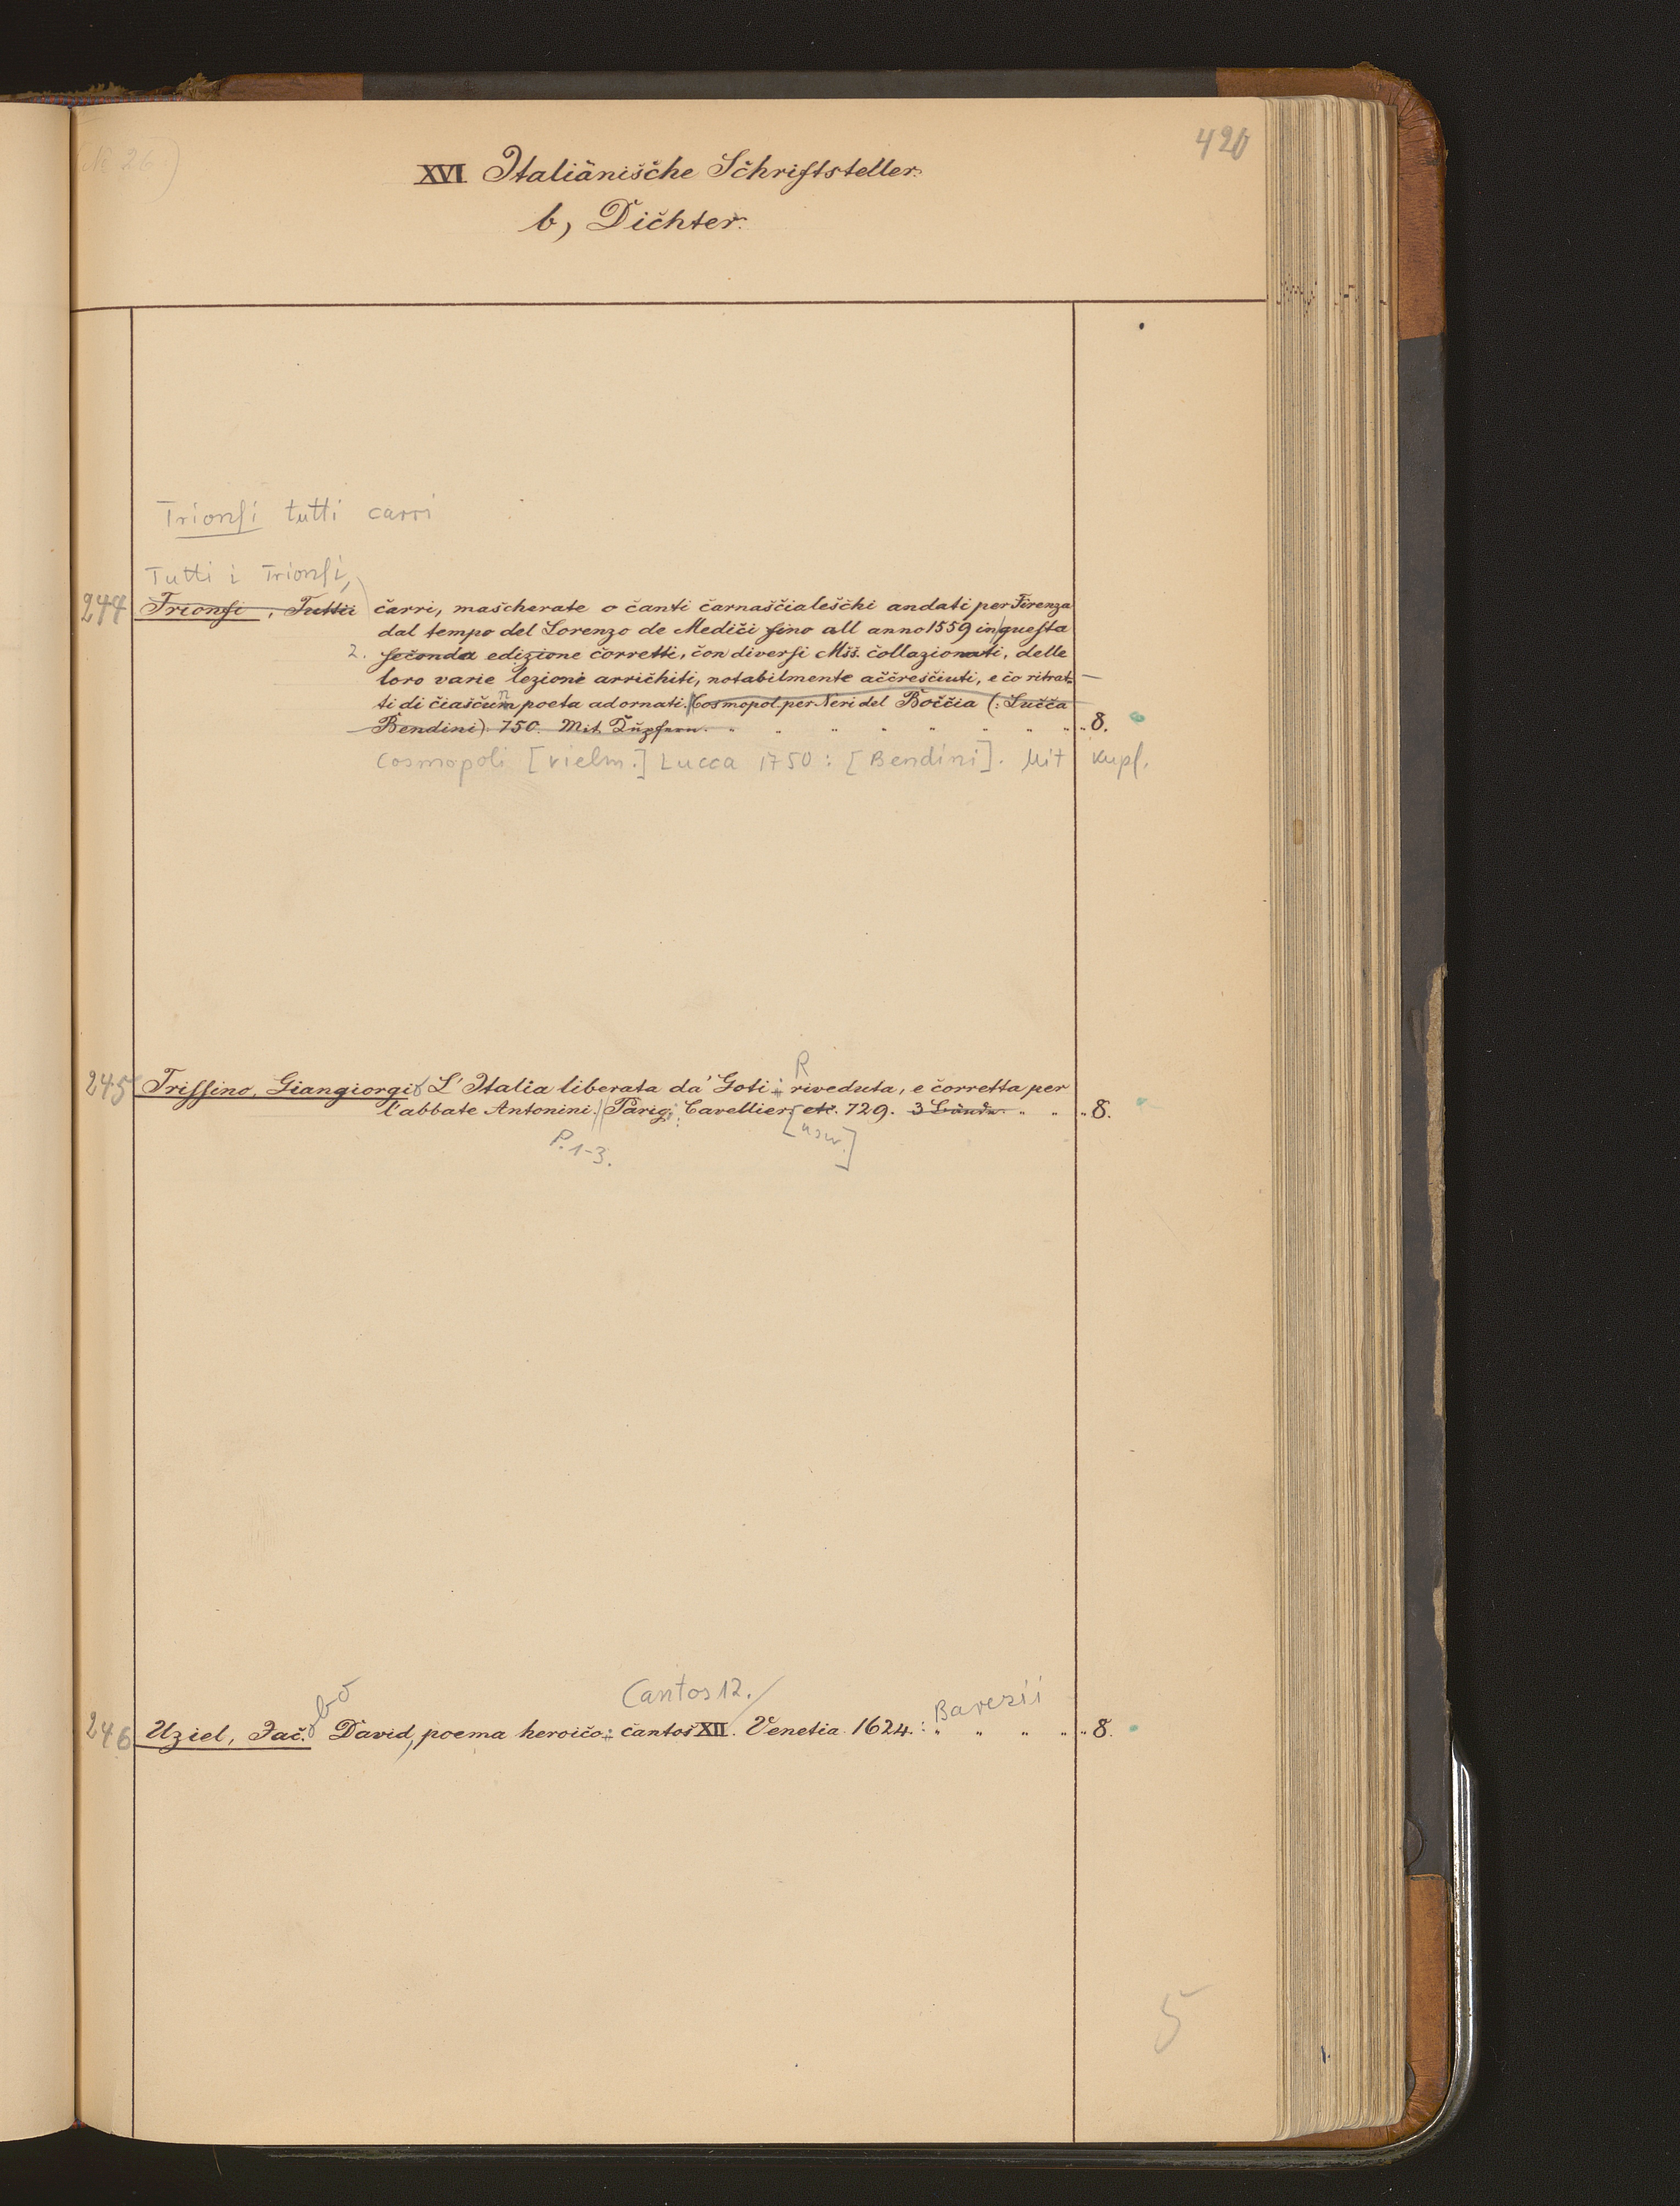 420
(No 26)
XVI. Italiänische Schriftsteller.
b, Dichter.
Trionfi tutti carri
Tutti i Trionfi,
244 Trionfi, Tutti i carri, mascherate o canti carnascialeschi andati per Firenza
dal tempo del Lorenzo de Medici fino all anno 1559 in questa
2. seconda edizione corretti, con diversi Mss. collazionati, delle
loro varie lezione arrichiti, notabilmente accresciuti, e co ritrat-
ti di ciascum n poeta adornati. Cosmopol. per Neri del Boccia (: Lucca
Bendini) 750. Mit Kupfern. " " " " " " " 8.
Cosmopoli [vielm.] Lucca 1750: [Bendini]. Mit Kupf.
R
245 Trissino, Giangiorgio L'Italia liberata da' Goti: riveduta, e corretta per
l'abbate Antonini. Parigi: Cavellier, etc. 729. 3 Bände. " " " 8.
P. 1-3. [usw.]
bo Cantos 12. Barezii
246 Uziel, Jac. David, poema heroico: cantos XII. Venetia 1624. : " " " " " 8.
5